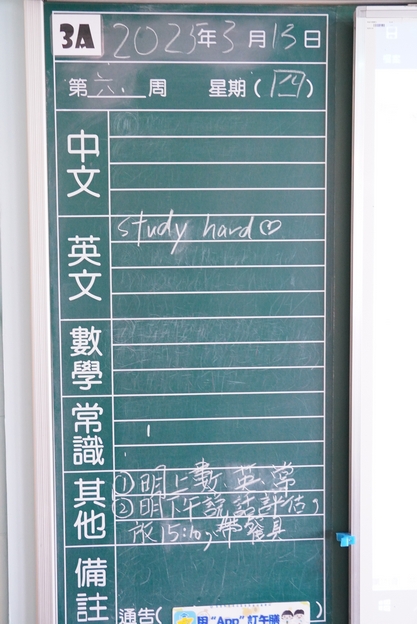 3A 2025年3月13日
第六周 星期(四)
中文
英文 study hard♡
數學
常識
其他 ①明上數、英、常
②明下午說話評估,
放15:10、帶餐具
備註
通告( )
用"App"訂午膳